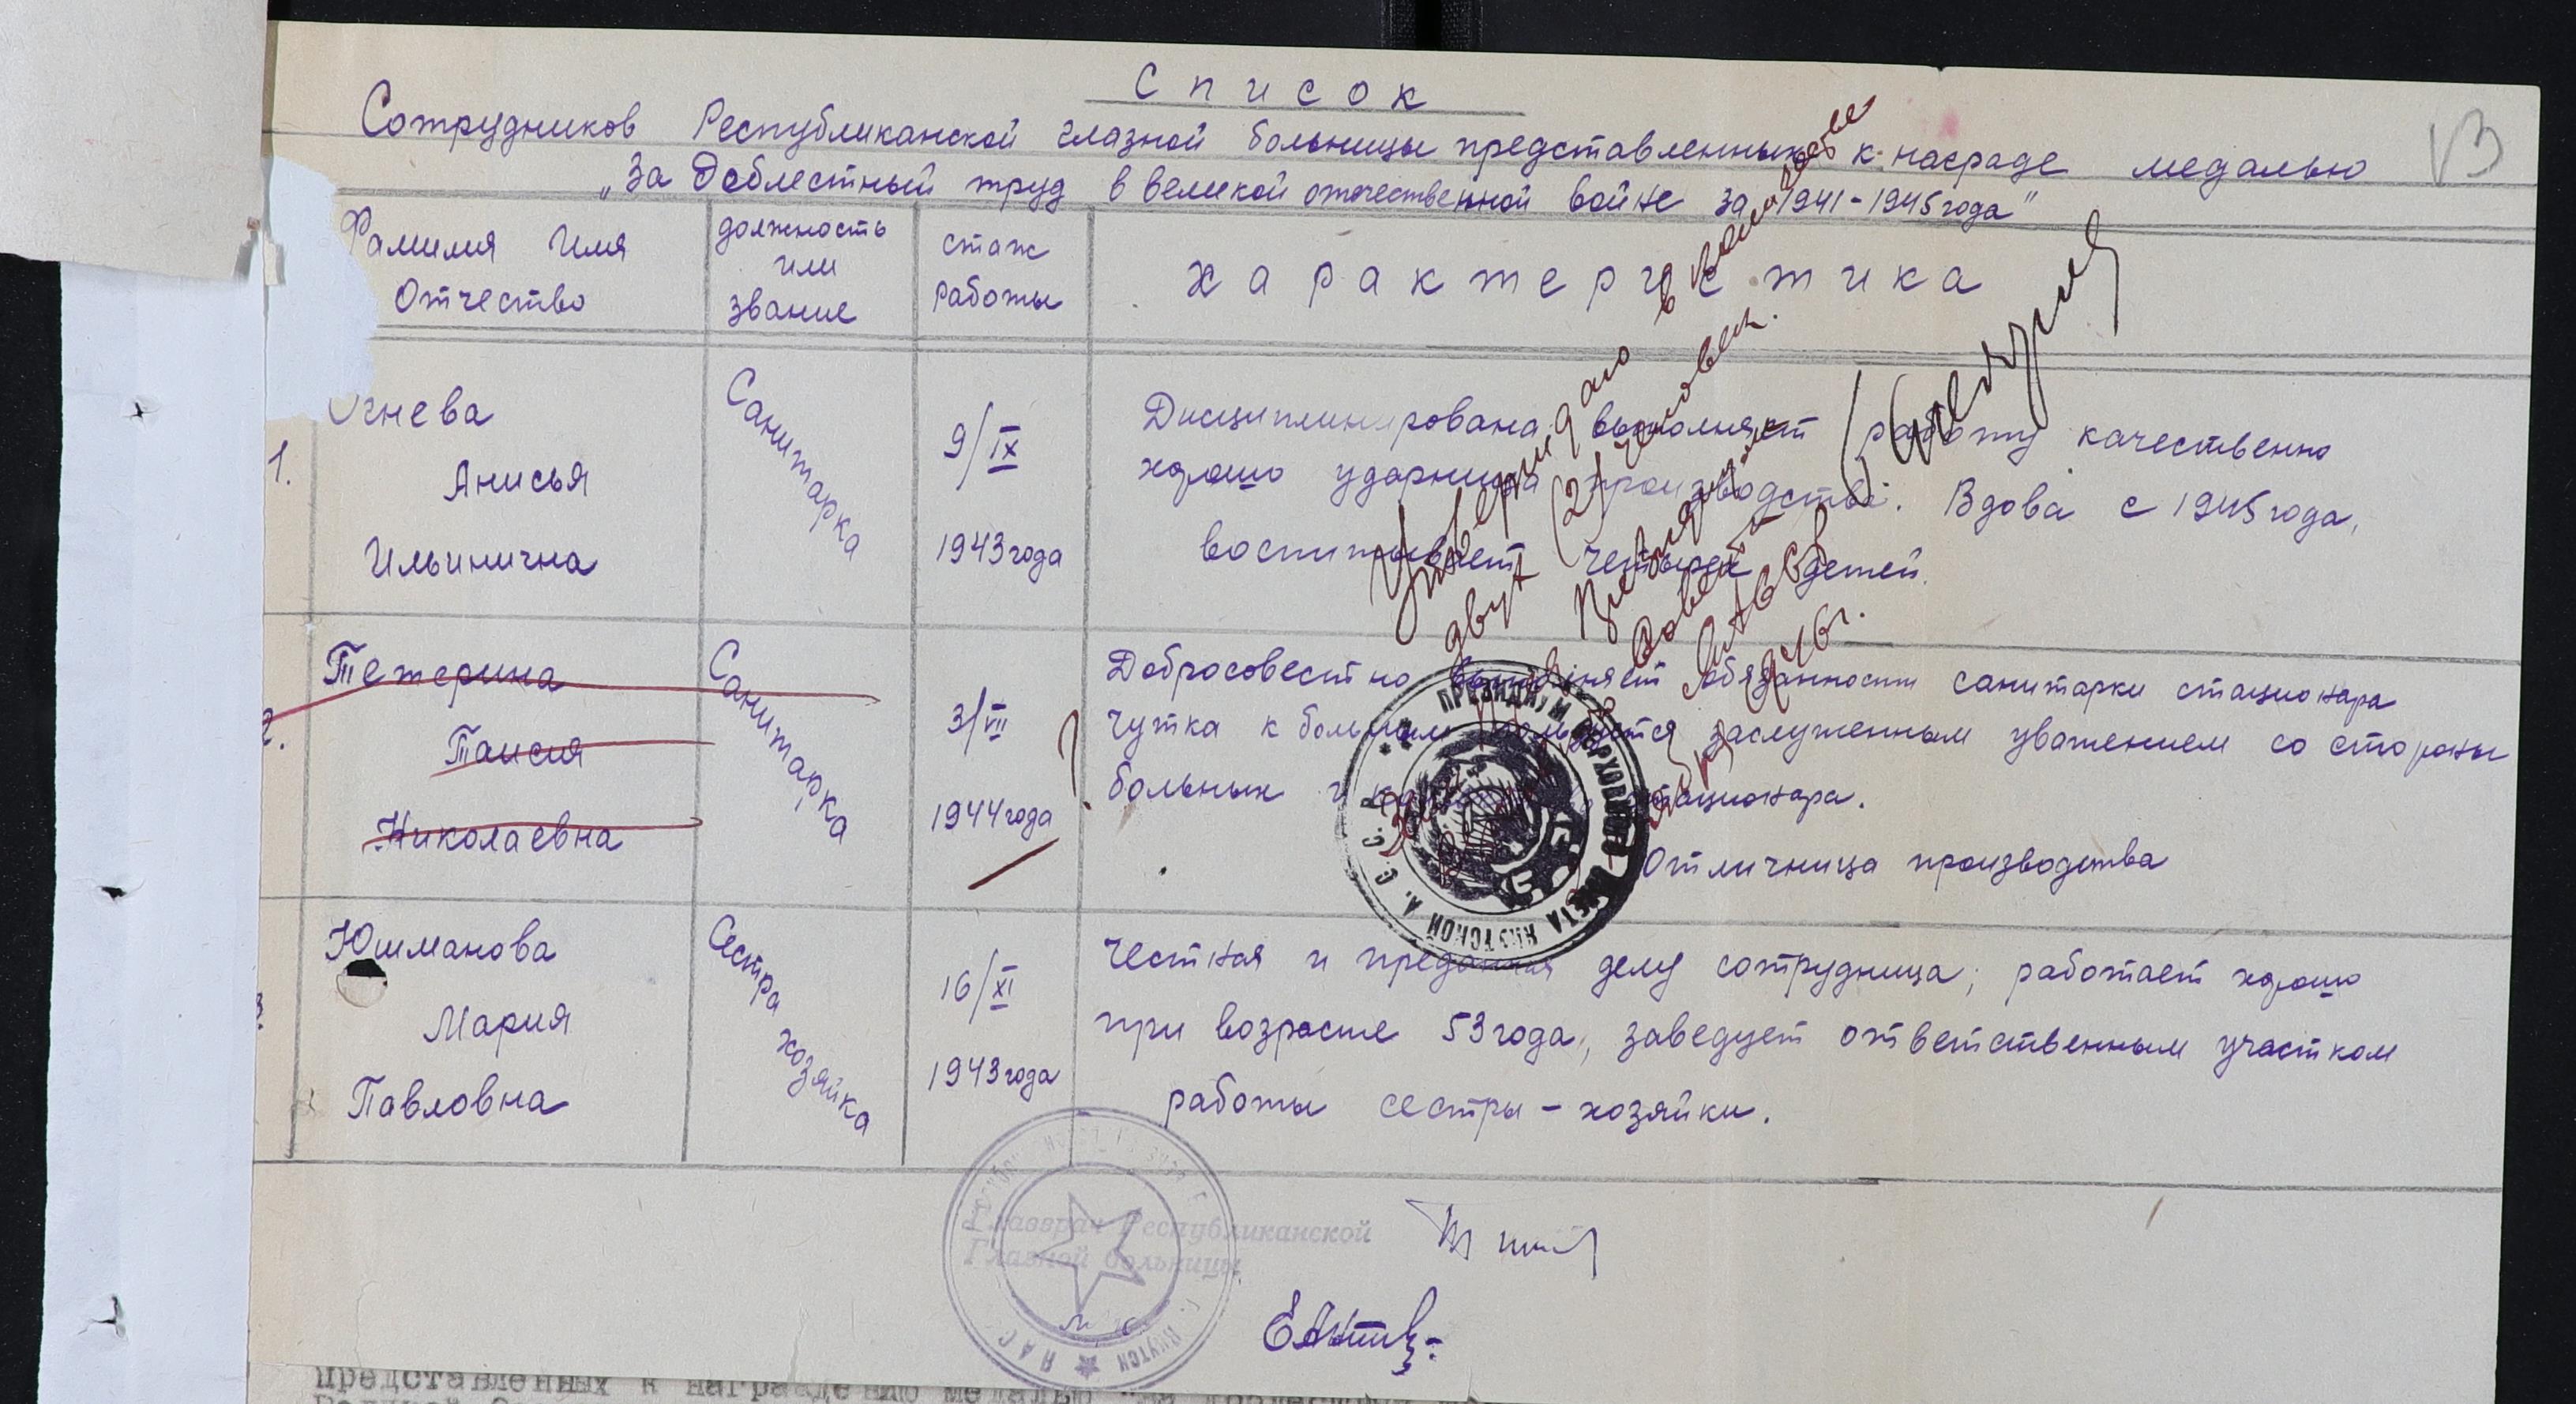 Список
Сотрудников Республиканской глазной больницы представленных к награде медалью
„За Доблестный труд в великой отечественной войне за 1941-1945 года"
13
Фамилия Имя Отчество
должность или звание
стаж работы
характеристика
1.
Огнева Анисья Ильинична
Санитарка
9/IX 1943 года
Дисциплинирована, выполняет работу качественно
хорошо ударница производства. Вдова с 1945 года,
воспитывает четырех детей.
2.
Тетерина Таисия Николаевна
Санитарка
3/VII 1944 года
?
Добросовестно выполняет обязанности санитарки стационара
чутка к больным пользуется заслуженным уважением со стороны
больных и стационара.
Отличница производства
3.
Юшманова Мария Павловна
Сестра хозяйка
16/XI 1943 года
Честная и преданная делу сотрудница; работает хорошо
при возрасте 53 года, заведует ответственным участком
работы сестры-хозяйки.
Утверждаю в количестве
двух (2) человек.
ПРЕЗИДИУМ ВЕРХОВНОГО СОВЕТА ЯКУТСКОЙ А.С.С.Р.
Главврач Республиканской
Глазной больницы
представленных к награждению медалью "За доблестный